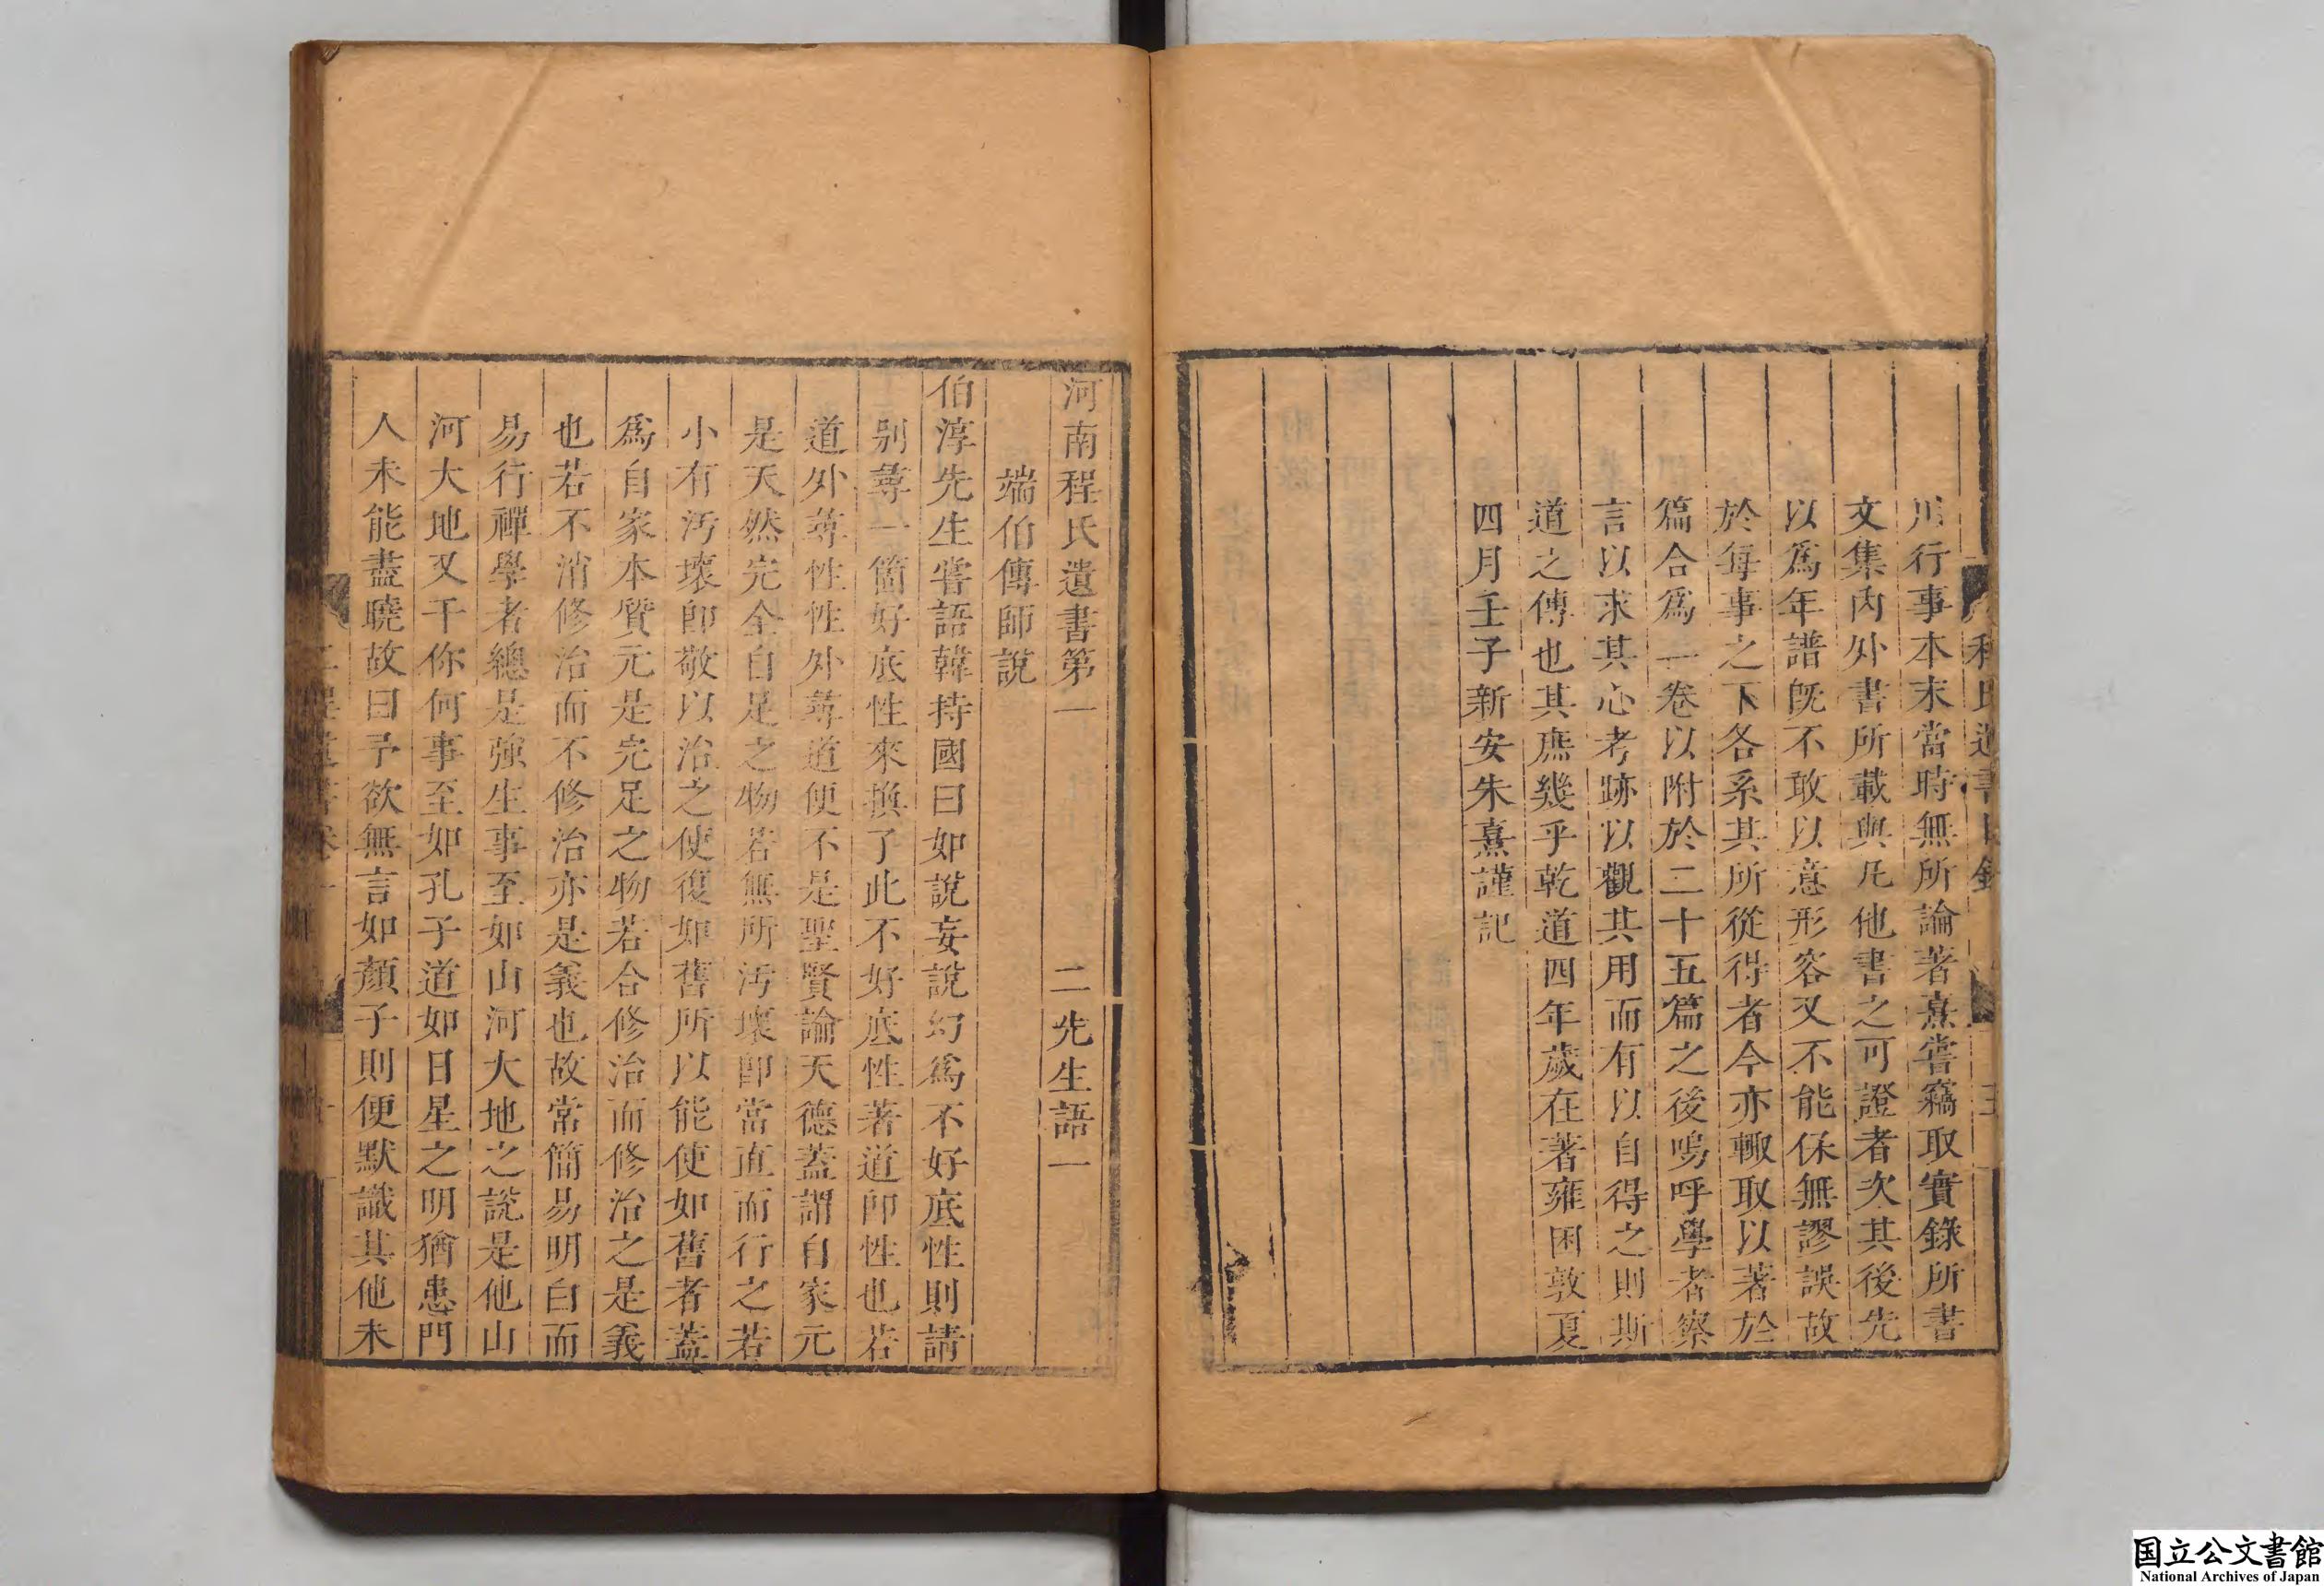 川行事本末當時無所論著熹嘗竊取實錄所書
文集內外書所載與凡他書之可證者次其後先
以爲年譜既不敢以意形容又不能保無謬誤故
於每事之下各系其所從得者今亦輙取以著於
篇合爲一卷以附於二十五篇之後嗚呼學者察
言以求其心考跡以觀其用而有以自得之則斯
道之傳也其庶幾乎乾道四年歲在著雍困敦夏
四月壬子新安朱熹謹記
河南程氏遺書第一 二先生語一
端伯傳師說
伯淳先生嘗語韓持國曰如說妄說幻爲不好底性則請
别尋一箇好底性來換了此不好底性著道卽性也若
道外尋性性外尋道便不是聖賢論天德蓋謂自家元
是天然完全自足之物若無所汚壞卽當直而行之若
小有汚壞卽敬以治之使復如舊所以能使如舊者蓋
爲自家本質元是完足之物若合修治而修治之是義
也若不消修治而不修治亦是義也故常簡易明白而
易行禪學者總是強生事至如山河大地之說是他山
河大地又干你何事至如孔子道如日星之明猶患門
人未能盡曉故曰予欲無言如顏子則便默識其他未
国立公文書館
National Archives of Japan